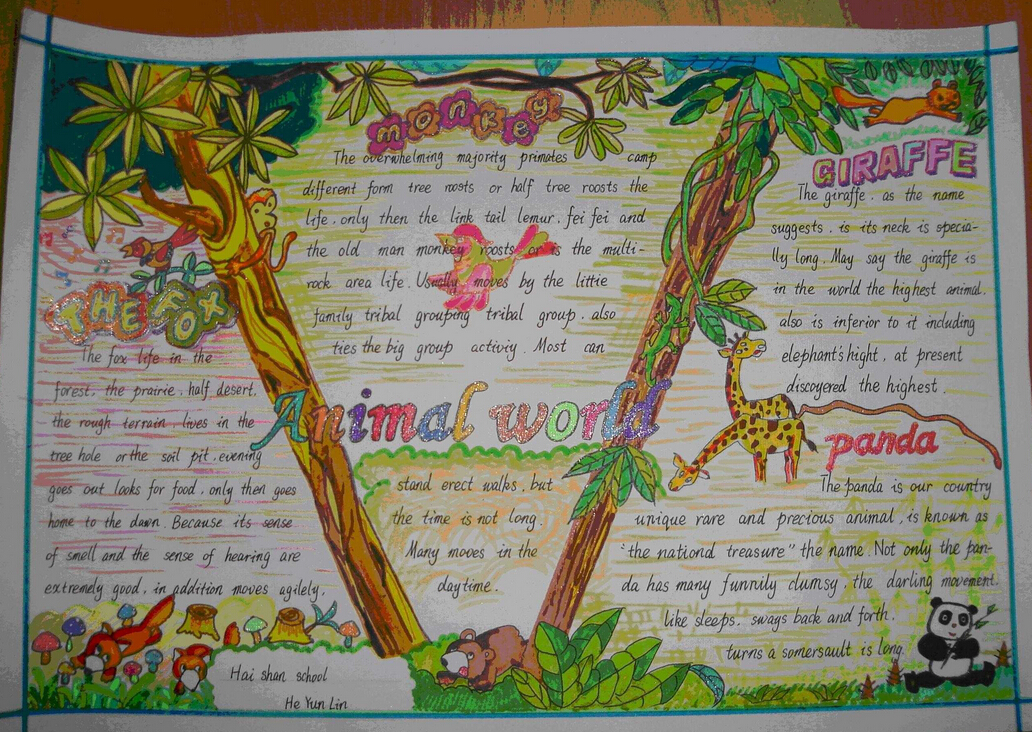 monkey
The overwhelming majority primates camp
different form tree roosts or half tree roosts the
life. only then the link tail lemur. fei fei and
the old man monkey roosts or is the multi-
rock area life. Usually moves by the little
family tribal grouping tribal group. also
ties the big group activiy. Most can
Animal world
stand erect walks, but
the time is not long.
Many moves in the
daytime.
THE FOX
The fox life in the
forest, the prairie, half desert,
the rough terrain, lives in the
tree hole or the soil pit, evening
goes out looks for food, only then goes
home to the dawn. Because its sense
of smell and the sense of hearing are
extremely good, in addition moves agilely,
Hai shan school
He Yun Lin
GIRAFFE
The giraffe, as the name
suggests, is its neck is specia-
lly long. May say the giraffe is
in the world the highest animal.
also is inferior to it including
elephant's hight, at present
discoyered the highest.
panda
The panda is our country
unique rare and precious animal, is known as
"the nationd treasure" the name. Not only the pan-
da has many funnily clumsy, the darling movement.
like sleeps, sways back and forth,
turns a somersault is long.